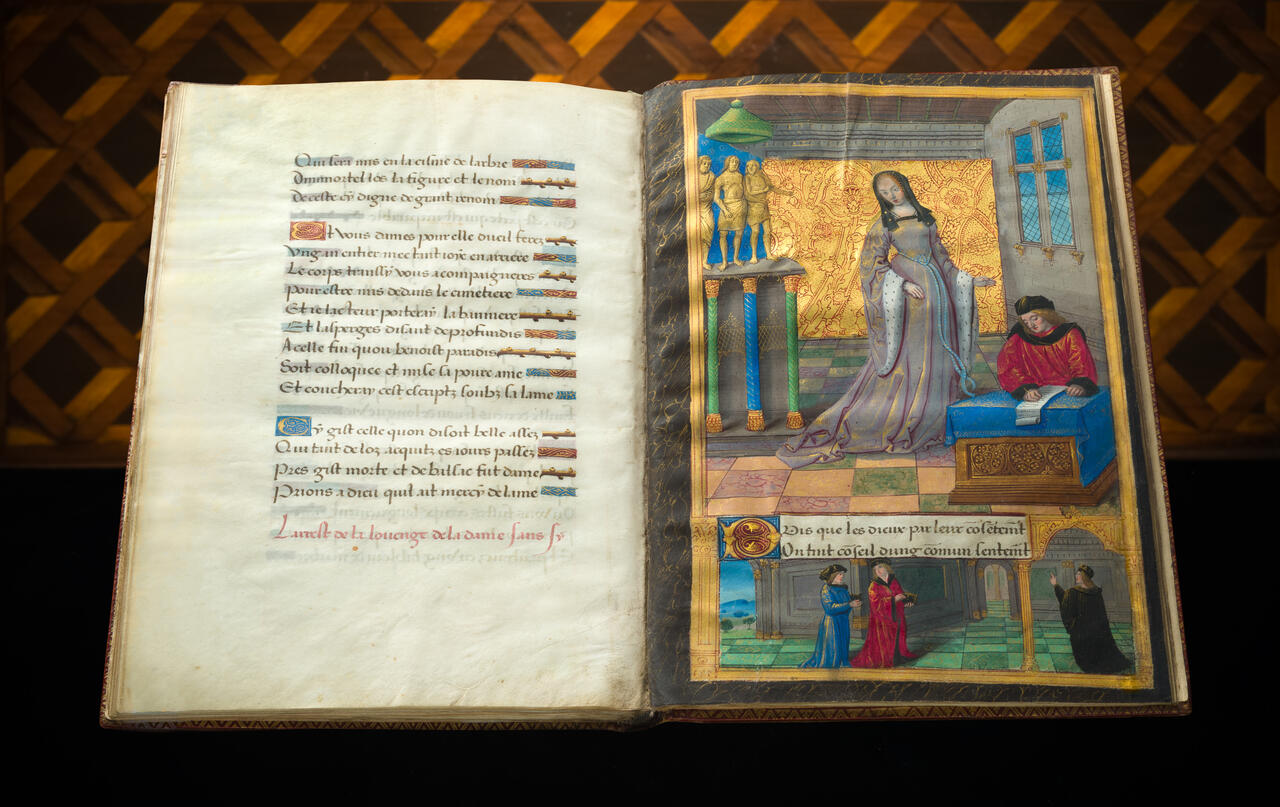 Qui sera mis en la cisine de larbre
Dimmortel los la figure et le nom
De ceste cy digne de grant renom
Et vous dames pour elle dueil ferez
Ung an entier mectant ioye en arriere
Le corps transsy vous acompaigneres
Pour estre mis dedans le cimetiere
Et ie lacteur porteray la banniere
Et lasperges disant de profundis
A celle fin quon benoist paradis
Soit colloquee et mise la poure ame
Et coucheray cest escript soubz sa lame
Cy gist celle quon disoit belle assez
Qui tant de loz acquit es iours passez
Pres gist morte et de balsac fut dame
Prions a dieu quil ait mercy de lame
Larrest de la louenge de la dame sans sy
Puis que les dieux par leur cosetemt
On tint coseil dung comun sentemt